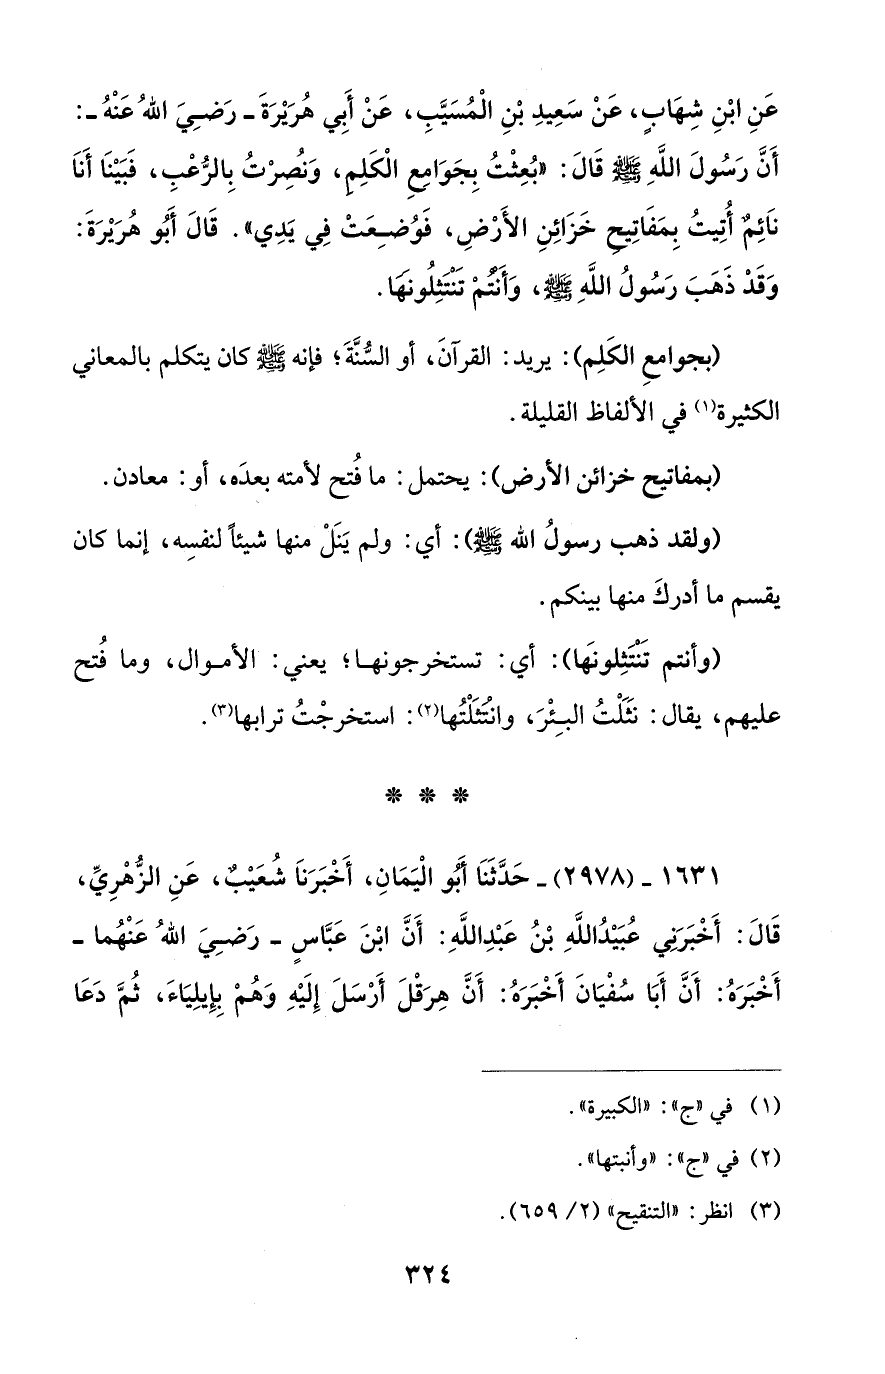 عَنِ ابْنِ شِهَابٍ، عَنْ سَعِيدِ بْنِ الْمُسَيَّبِ، عَنْ أَبِي هُرَيْرَةَ ـ رَضِيَ اللهُ عَنْهُ ـ:
أَنَّ رَسُولَ اللَّهِ ﷺ قَالَ: «بُعِثْتُ بِجَوَامِعِ الْكَلِمِ، وَنُصِرْتُ بِالرُّعْبِ، فَبَيْنَا أَنَا
نَائِمٌ أُتِيتُ بِمَفَاتِيحِ خَزَائِنِ الأَرْضِ، فَوُضِعَتْ فِي يَدِي». قَالَ أَبُو هُرَيْرَةَ:
وَقَدْ ذَهَبَ رَسُولُ اللَّهِ ﷺ، وَأَنْتُمْ تَنْتَثِلُونَهَا.
(بجوامعِ الكَلِم): يريد: القرآنَ، أو السُّنَّةَ؛ فإنه ﷺ كان يتكلم بالمعاني
الكثيرة(١) في الألفاظ القليلة.
(بمفاتيح خزائن الأرض): يحتمل: ما فُتح لأمته بعدَه، أو: معادن.
(ولقد ذهب رسولُ الله ﷺ): أي: ولم يَنَلْ منها شيئاً لنفسِه، إنما كان
يقسم ما أدركَ منها بينكم.
(وأنتم تَنْتَثِلونَها): أي: تستخرجونها؛ يعني: الأموال، وما فُتح
عليهم، يقال: نَثَلْتُ البِئْرَ، وانْتَثَلْتُها(٢): استخرجْتُ ترابها(٣).
* * *
١٦٣١ ـ (٢٩٧٨) ـ حَدَّثَنَا أَبُو الْيَمَانِ، أَخْبَرَنَا شُعَيْبٌ، عَنِ الزُّهْرِيِّ،
قَالَ: أَخْبَرَنِي عُبَيْدُاللَّهِ بْنُ عَبْدِاللَّهِ: أَنَّ ابْنَ عَبَّاسٍ ـ رَضِيَ اللهُ عَنْهُما ـ
أَخْبَرَهُ: أَنَّ أَبَا سُفْيَانَ أَخْبَرَهُ: أَنَّ هِرَقْلَ أَرْسَلَ إِلَيْهِ وَهُمْ بِإِيلِيَاءَ، ثُمَّ دَعَا
(١) في «ج»: «الكبيرة».
(٢) في «ج»: «وأنبتها».
(٣) انظر: «التنقيح» (٢/ ٦٥٩).
٣٢٤